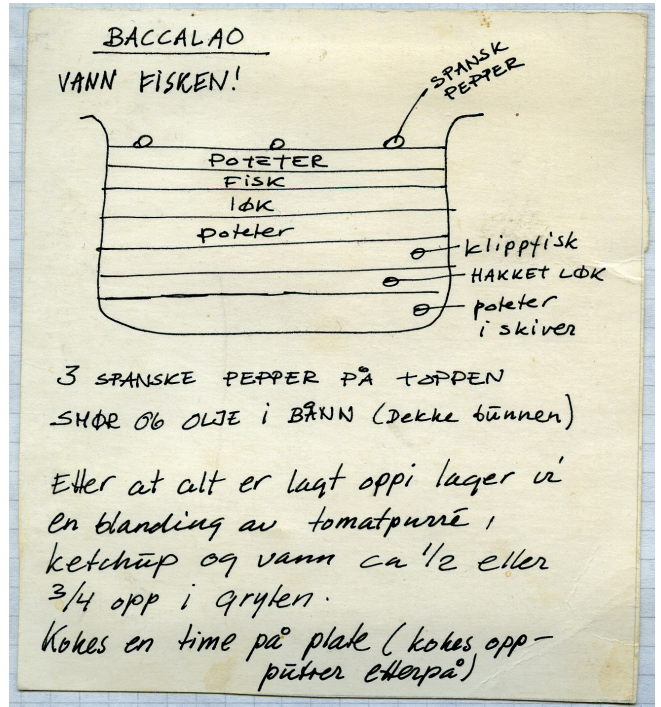 BACCALAO
VANN FISKEN!
SPANSK
PEPPER
POTETER
FISK
LØK
poteter
klippfisk
HAKKET LØK
poteter
i skiver
3 SPANSKE PEPPER PÅ TOPPEN
SMØR OG OLJE i BÅNN (Dekke bunnen)
Etter at alt er lagt oppi lager vi
en blanding av tomatpurré,
ketchup og vann ca 1/2 eller
3/4 opp i gryten.
Kokes en time på plate (kokes opp-
putrer etterpå)